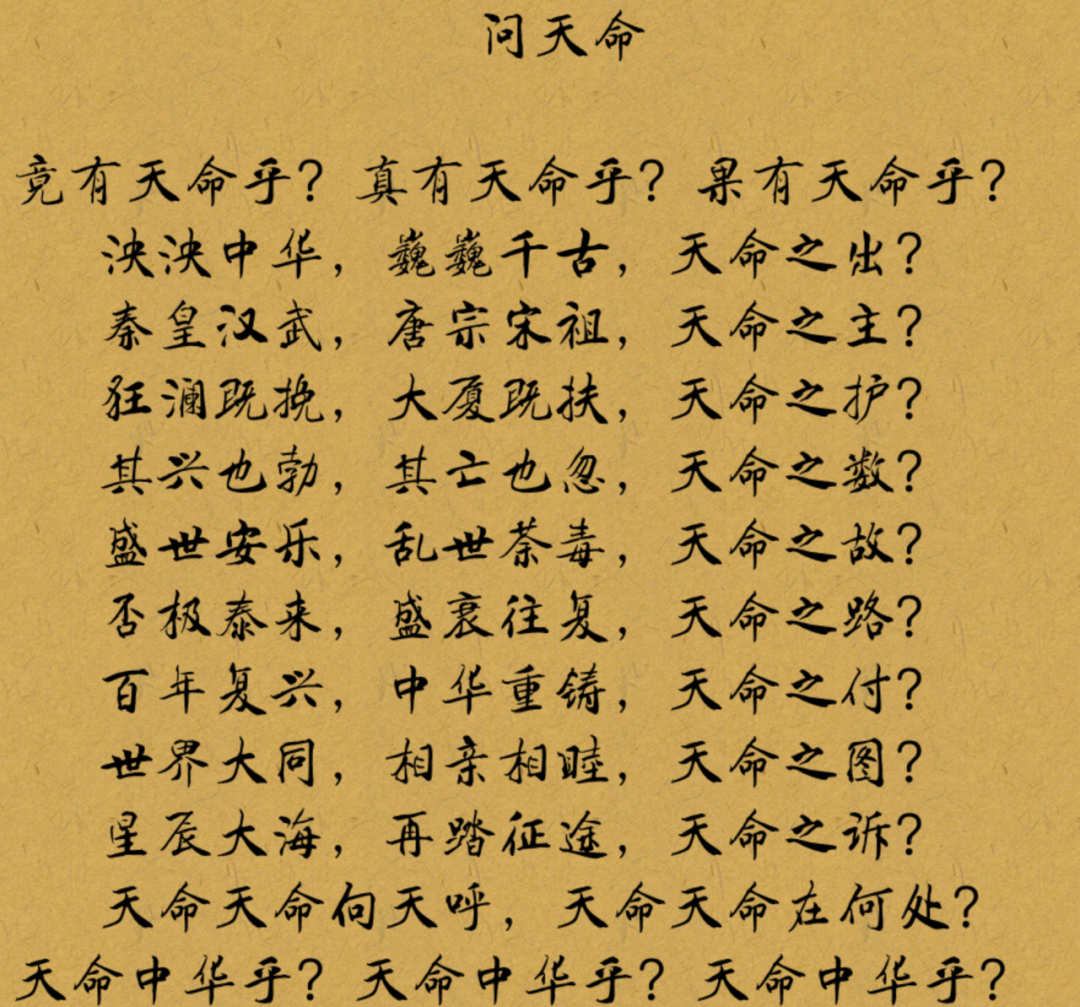 问天命
竟有天命乎？真有天命乎？果有天命乎？
泱泱中华，巍巍千古，天命之出？
秦皇汉武，唐宗宋祖，天命之主？
狂澜既挽，大厦既扶，天命之护？
其兴也勃，其亡也忽，天命之数？
盛世安乐，乱世荼毒，天命之故？
否极泰来，盛衰往复，天命之路？
百年复兴，中华重铸，天命之付？
世界大同，相亲相睦，天命之图？
星辰大海，再踏征途，天命之诉？
天命天命向天呼，天命天命在何处？
天命中华乎？天命中华乎？天命中华乎？